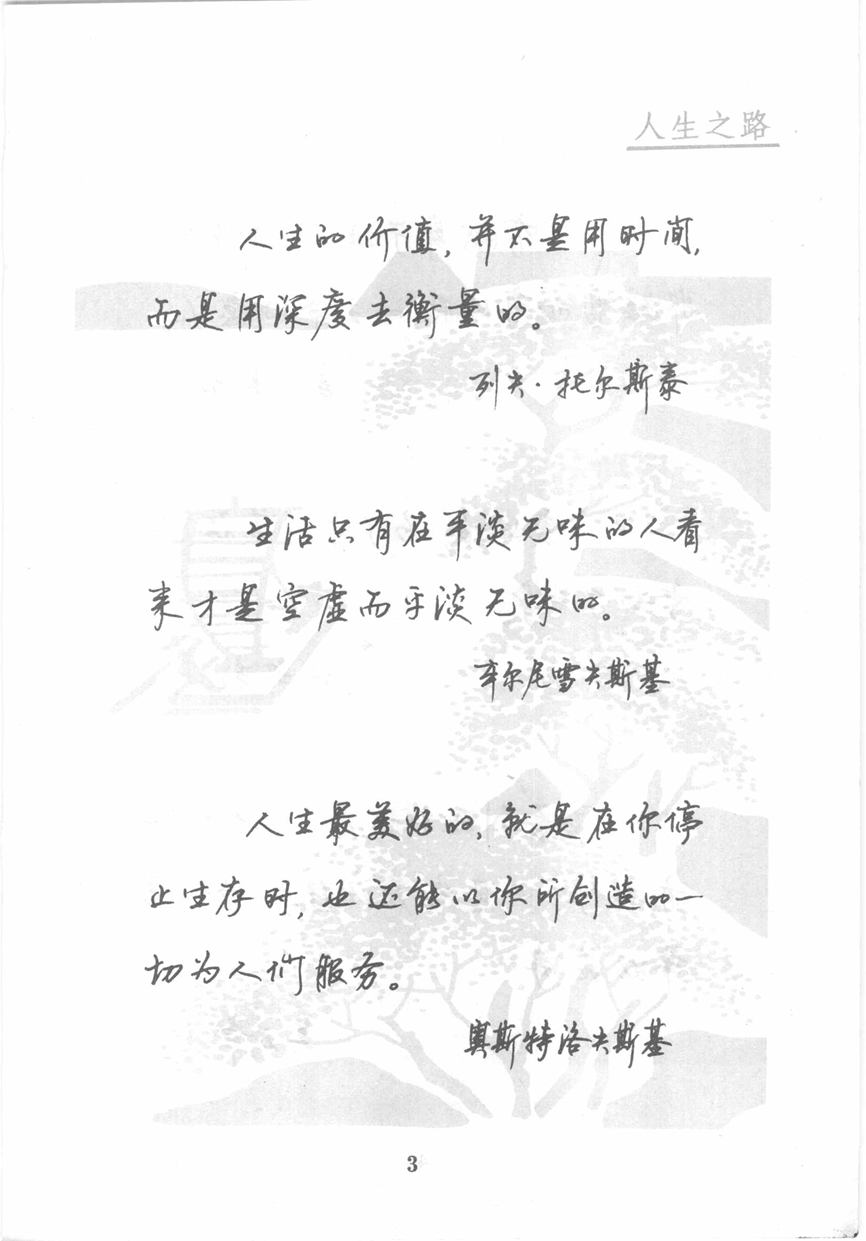 人生之路
人生的价值，并不是用时间，
而是用深度去衡量的。
列夫·托尔斯泰
生活只有在平淡无味的人看
来才是空虚而平淡无味的。
车尔尼雪夫斯基
人生最美好的，就是在你停
止生存时，也还能以你所创造的一
切为人们服务。
奥斯特洛夫斯基
3